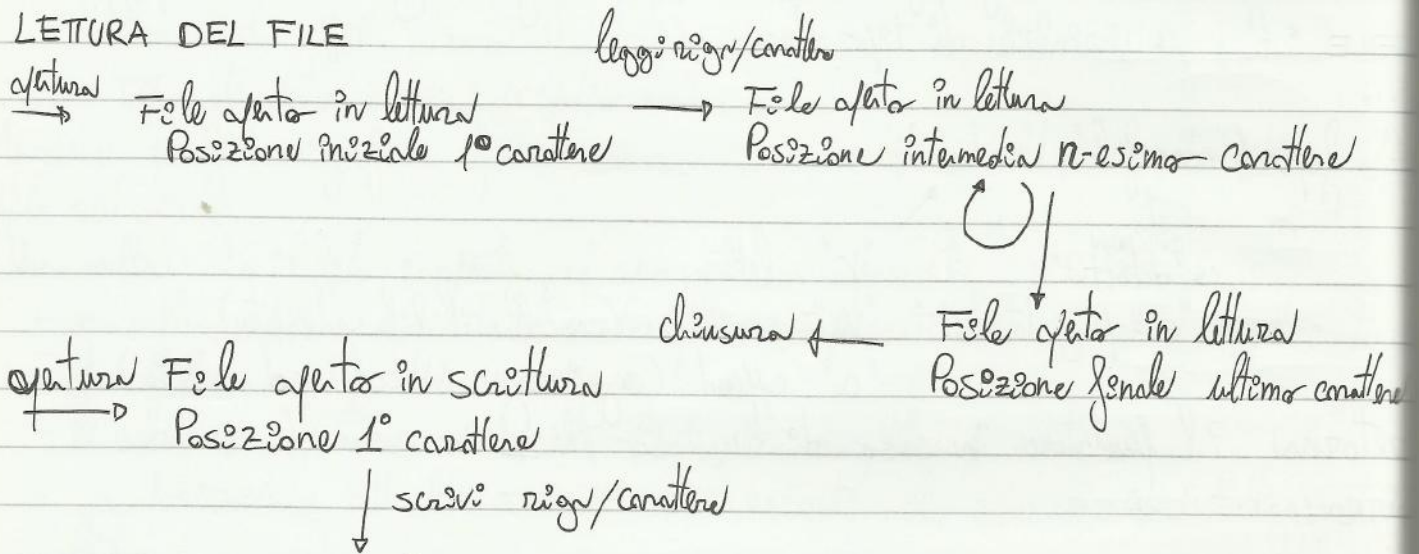 LETTURA DEL FILE
apertura → File aperto in lettura
Posizione iniziale 1° carattere
leggi riga/carattere
→ File aperto in lettura
Posizione intermedia n-esimo carattere
File aperto in lettura
Posizione finale ultimo carattere
chiusura ←
apertura → File aperto in scrittura
Posizione 1° carattere
↓ scrivi riga/carattere